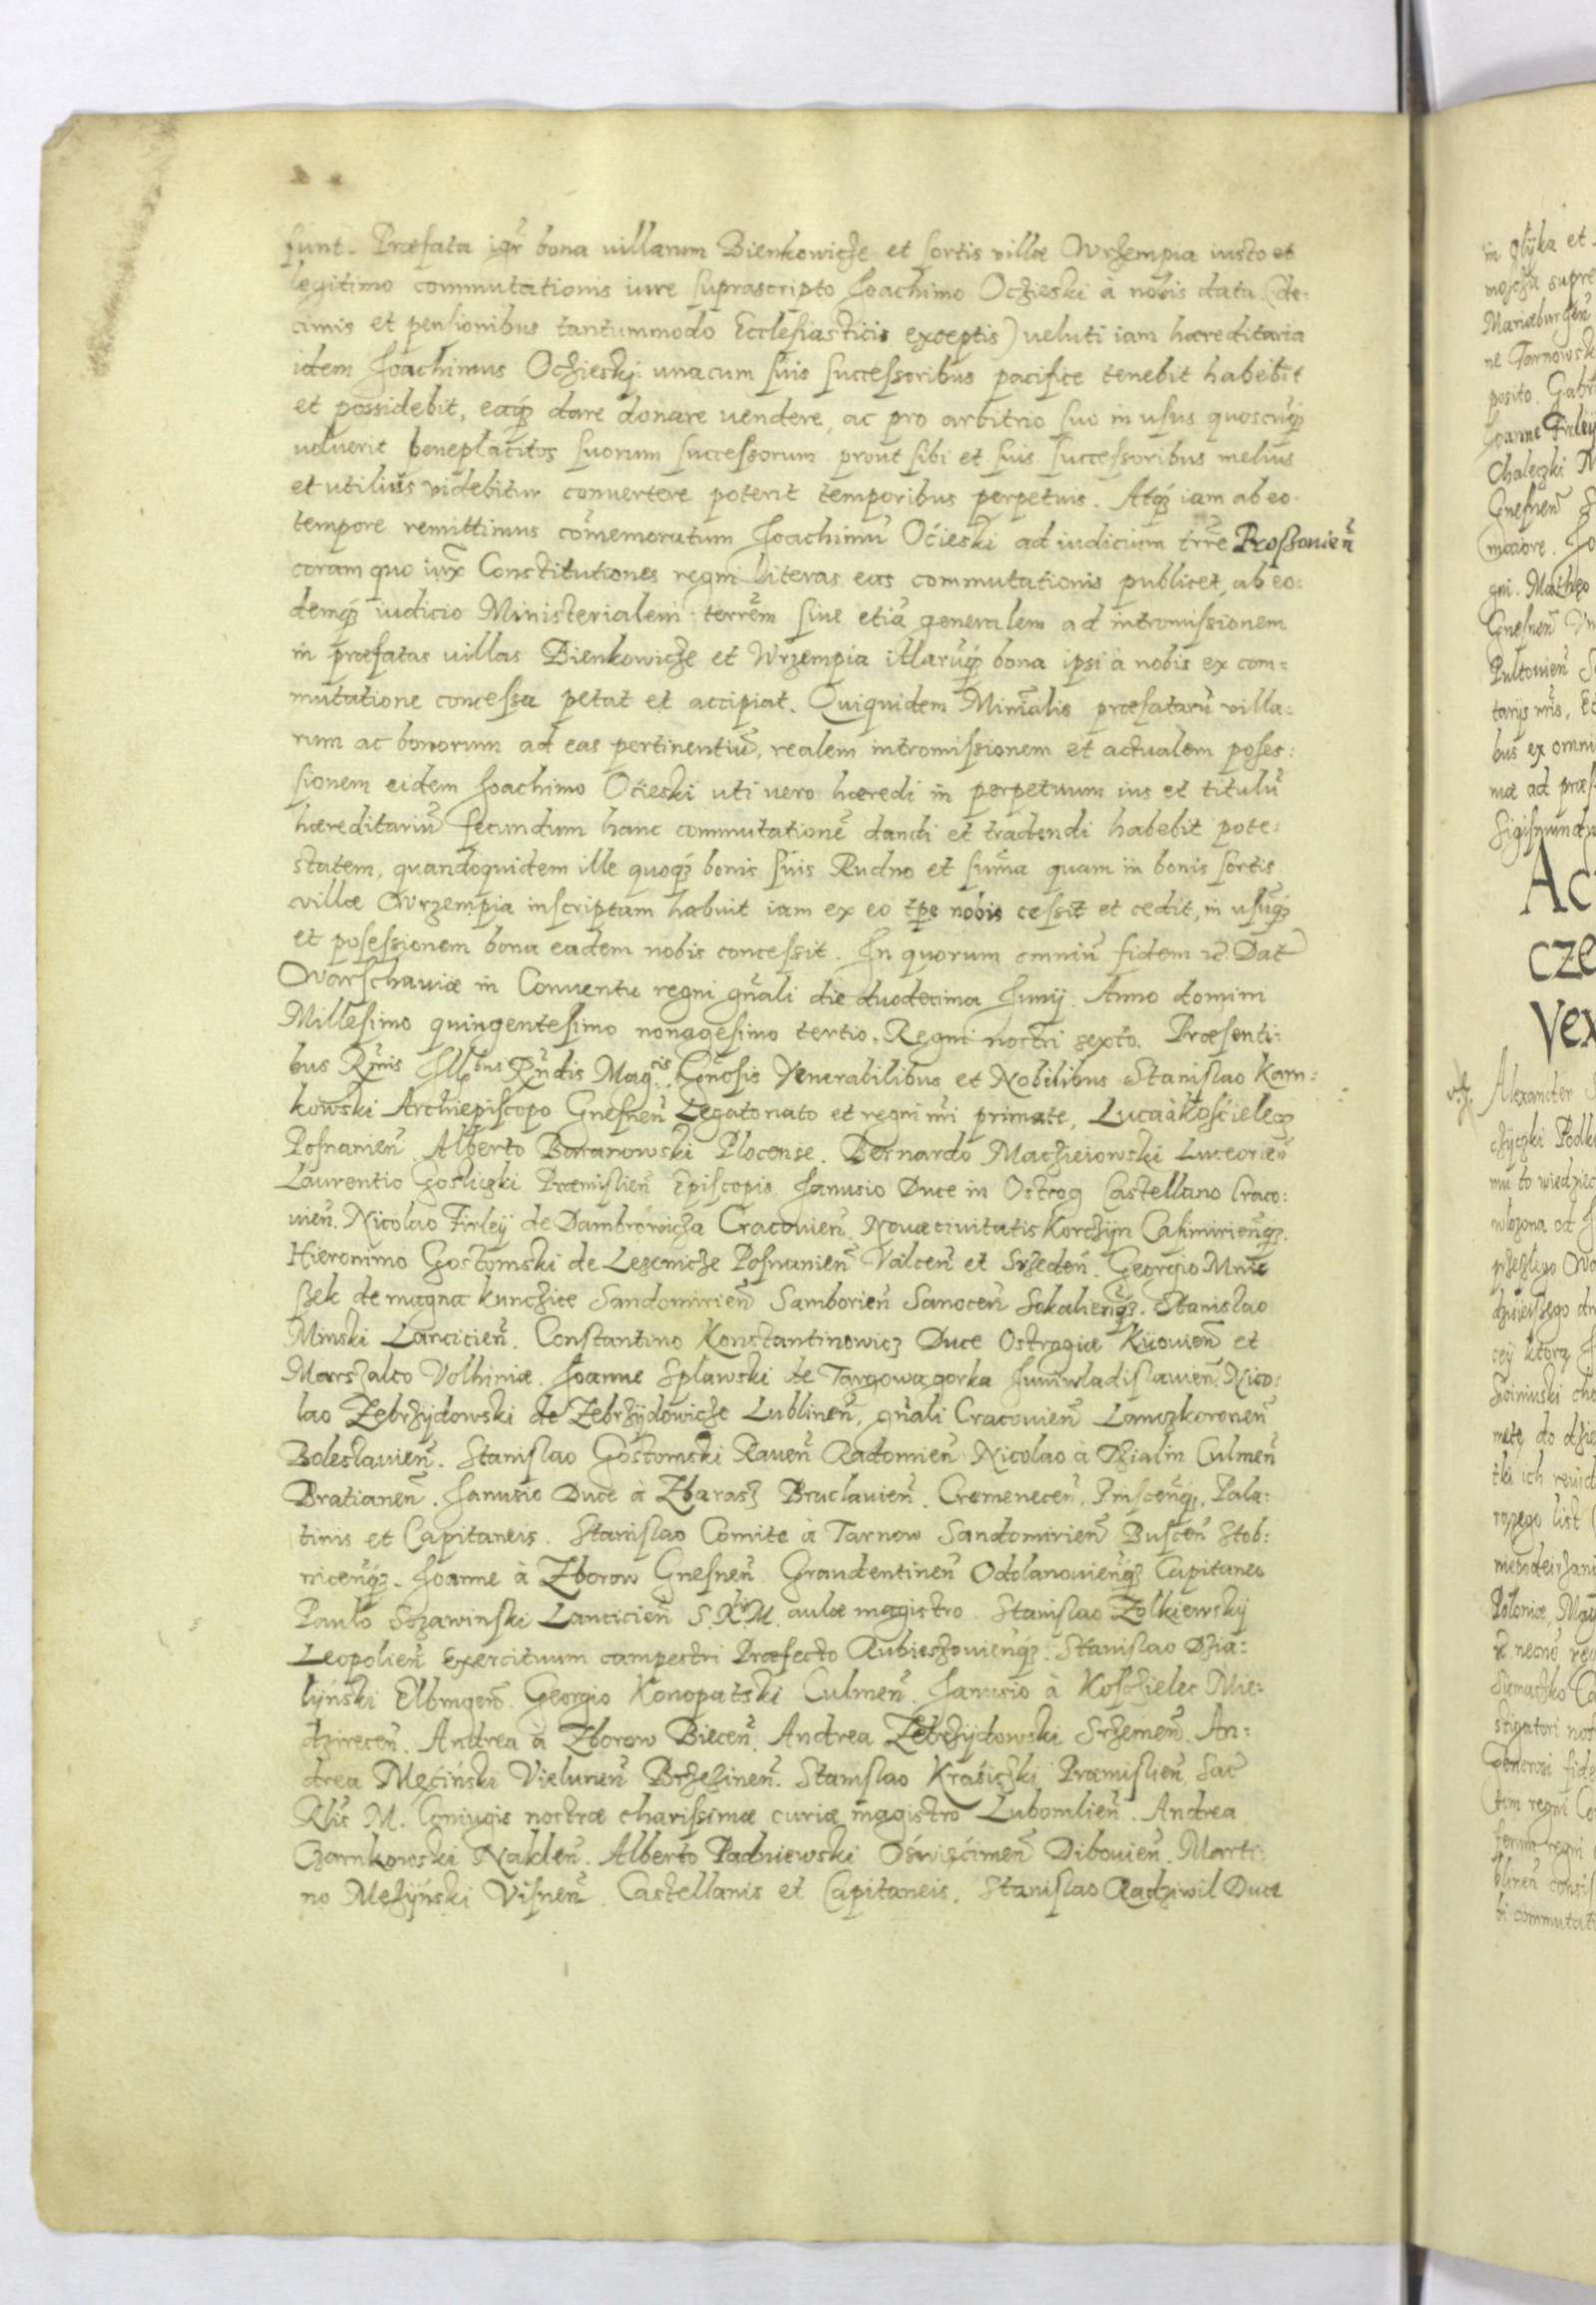 sunt. Præfata igr̃ bona villarum Bienkowicze et sortis villæ Wrzempia iusto et
legitimo commutationis iure suprascripto Joachimo Oczieski à nobis data (de:
cimis et pensionibus tantummodo Ecclesiasticis exceptis) veluti iam hæreditaria
idem Joachimus Oczieskj unacum suis successoribus pacifice tenebit habebit
et possidebit, eaq3 dare donare vendere, ac pro arbitrio suo in usus quoscũq3
voluerit beneplacitos suorum successorum prout sibi et suis successoribus melius
et utilius videbitur convertere poterit temporibus perpetuis. Atq3 iam ab eo
tempore remittimus cõmemoratum Joachimũ Ocieski ad iudicium trr̃e Proszovieñ
coram quo iux̃ Constitutiones regni literas eas commutationis publicet, ab eo:
demq3 iudicio Ministerialem terrẽm sive etiã generalem ad intromissionem
in præfatas villas Bienkowicze et Wrzempia illarũq3 bona ipsi à nobis ex com=
mutatione concessa petat et accipiat. Quiquidem Minrãlis præfatarũ villa:
rum ac bonorum ad eas pertinentiũ, realem intromissionem et actualem poses:
sionem eidem Joachimo Ocieski uti vero hæredi in perpetuum ius et titulũ
hæreditariũ secundum hanc commutationẽ dandi et tradendi habebit pote:
statem, quandoquidem ille quoq3 bonis suis Rudno et sum̃a quam in bonis sortis
villæ Wrzempia inscriptam habuit iam ex eo tp̃e nobis cessit et cedit, in usũq3
et posessionem bona eadem nobis concessit. In quorum omniũ fidem ꝛc̃ Dat̃
Warschaviæ in Conventu regni gñali die duodecima Junij. Anno domini
Millesimo quingentesimo nonagesimo tertio. Regni nostri sexto. Præsenti:
bus Rm̃is Ill^bus Rñdis Mag^cis. Gñosis Venerabilibus et Nobilibus Stanislao Karn:
kowski Archiepiscopo Gnesneñ Legatonato et regni nr̃i primate, Luca à Koscielecz
Posnanieñ. Alberto Baranowski Plocense. Bernardo Maczieiowski Luceorieñ
Laurentio Gosliczki Præmislieñ Episcopis. Janusio Duce in Ostrog Castellano Craco:
vieñ. Nicolao Firleÿ de Dambrowicza Cracovieñ. Novæ civitatis Korczÿn Casimirieñq3.
Hieronimo Gostomski de Lezenicze Posnanieñ Valceñ et Srzedeñ. Georgio Mnis
szek de magna kunczice Sandomirieñ Samborieñ Sanoceñ Sokalieñq3. Stanislao
Minski Lancicieñ. Constantino Konstantinowicz Duce Ostrogiæ Kiiovieñ et
Marszalco Volhiniæ. Joanne Splawski de Targowagorka Juniwladislavieñ. Nico:
lao Zebrzÿdowski de Zebrzÿdowicze Lublineñ, gñali Cracovieñ Lanczkoroneñ
Boleslavieñ. Stanislao Gostomski Raveñ Radomieñ Nicolao à Dzialin Culmeñ
Bratianeñ. Janusio Duce à Zbarasz Braclavieñ. Cremeneceñ, Pinsceñq3, Pala:
tinis et Capitaneis. Stanislao Comite à Tarnow Sandomirieñ Busceñ Stob:
niceñq3. Joanne à Zborow Gnesneñ Graudentineñ Odolanovieñq3 Capitaneo
Paulo Sczawinski Lancicieñ S. R. M. aulæ magistro Stanislao Zolkiewskij
Leopolieñ Exercituum campestri Præfecto Rubieszovieñq3. Stanislao Dzia:
lÿński Elbingeñ. Georgio Konopatski Culmeñ. Janusio à Kosczielec Mie:
dzireceñ. Andrea à Zborow Bieceñ. Andrea Zebrzÿdowski Srzemeñ. An:
drea Męciński Vieluneñ Brzezineñ. Stanislao Krasiczki Præmislieñ Sac̃
Rl̃is M. Coniugis nostræ charissimæ curiæ magistro Lubomlieñ. Andrea
Czarnkowski Nakleñ. Alberto Padniewski Oświęcimeñ Dibovieñ. Marti:
no Mezÿński Visneñ. Castellanis et Capitaneis. Stanislao Radziwil Duce